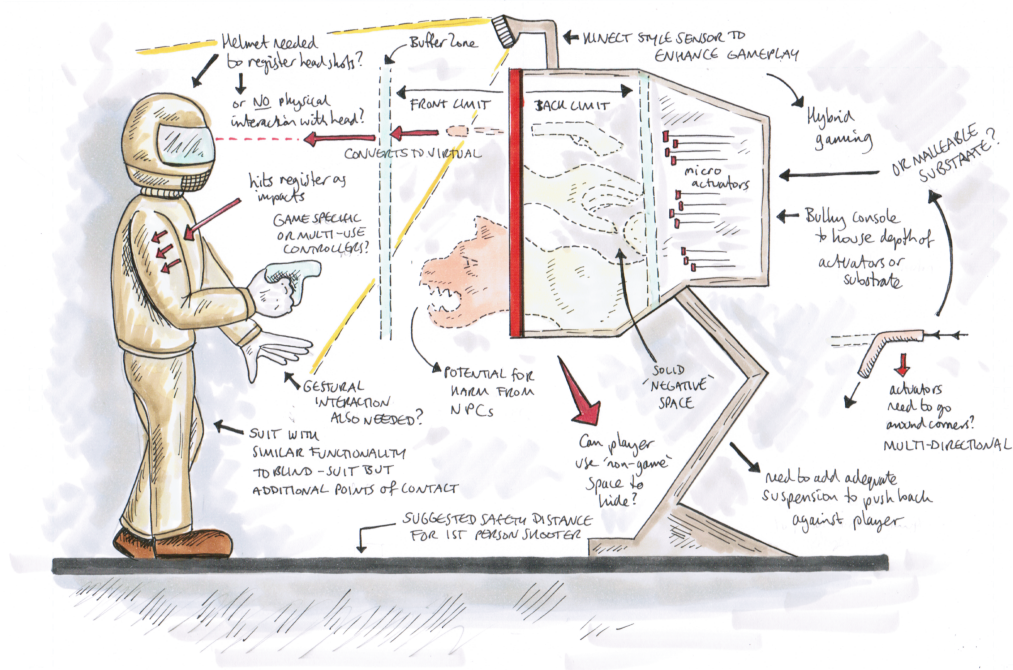 Helmet needed
to register headshots?
or NO physical
interaction with head?
Buffer Zone
KINECT STYLE SENSOR TO
ENHANCE GAMEPLAY
FRONT LIMIT
BACK LIMIT
Hybrid
gaming
CONVERTS TO VIRTUAL
micro
actuators
OR MALLEABLE
SUBSTRATE?
hits register as
impacts
GAME SPECIFIC
OR MULTI-USE
CONTROLLERS?
Bulky console
to house depth of
actuators or
substrate
POTENTIAL FOR
HARM FROM
NPCs
SOLID
'NEGATIVE'
SPACE
GESTURAL
INTERACTION
ALSO NEEDED?
actuators
need to go
around corners?
MULTI-DIRECTIONAL
SUIT WITH
SIMILAR FUNCTIONALITY
TO BLIND-SUIT BUT
ADDITIONAL POINTS OF CONTACT
Can player
use 'non-game'
space to
hide?
need to add adequate
suspension to push back
against player
SUGGESTED SAFETY DISTANCE
FOR 1ST PERSON SHOOTER